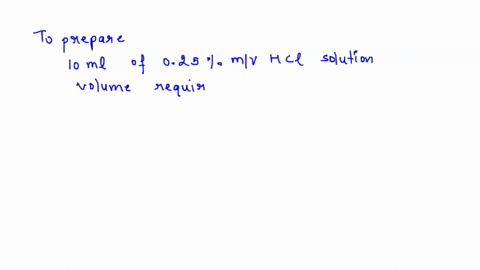 To prepare
10 ml of 0.25 %. m/v HCl solution
volume requir